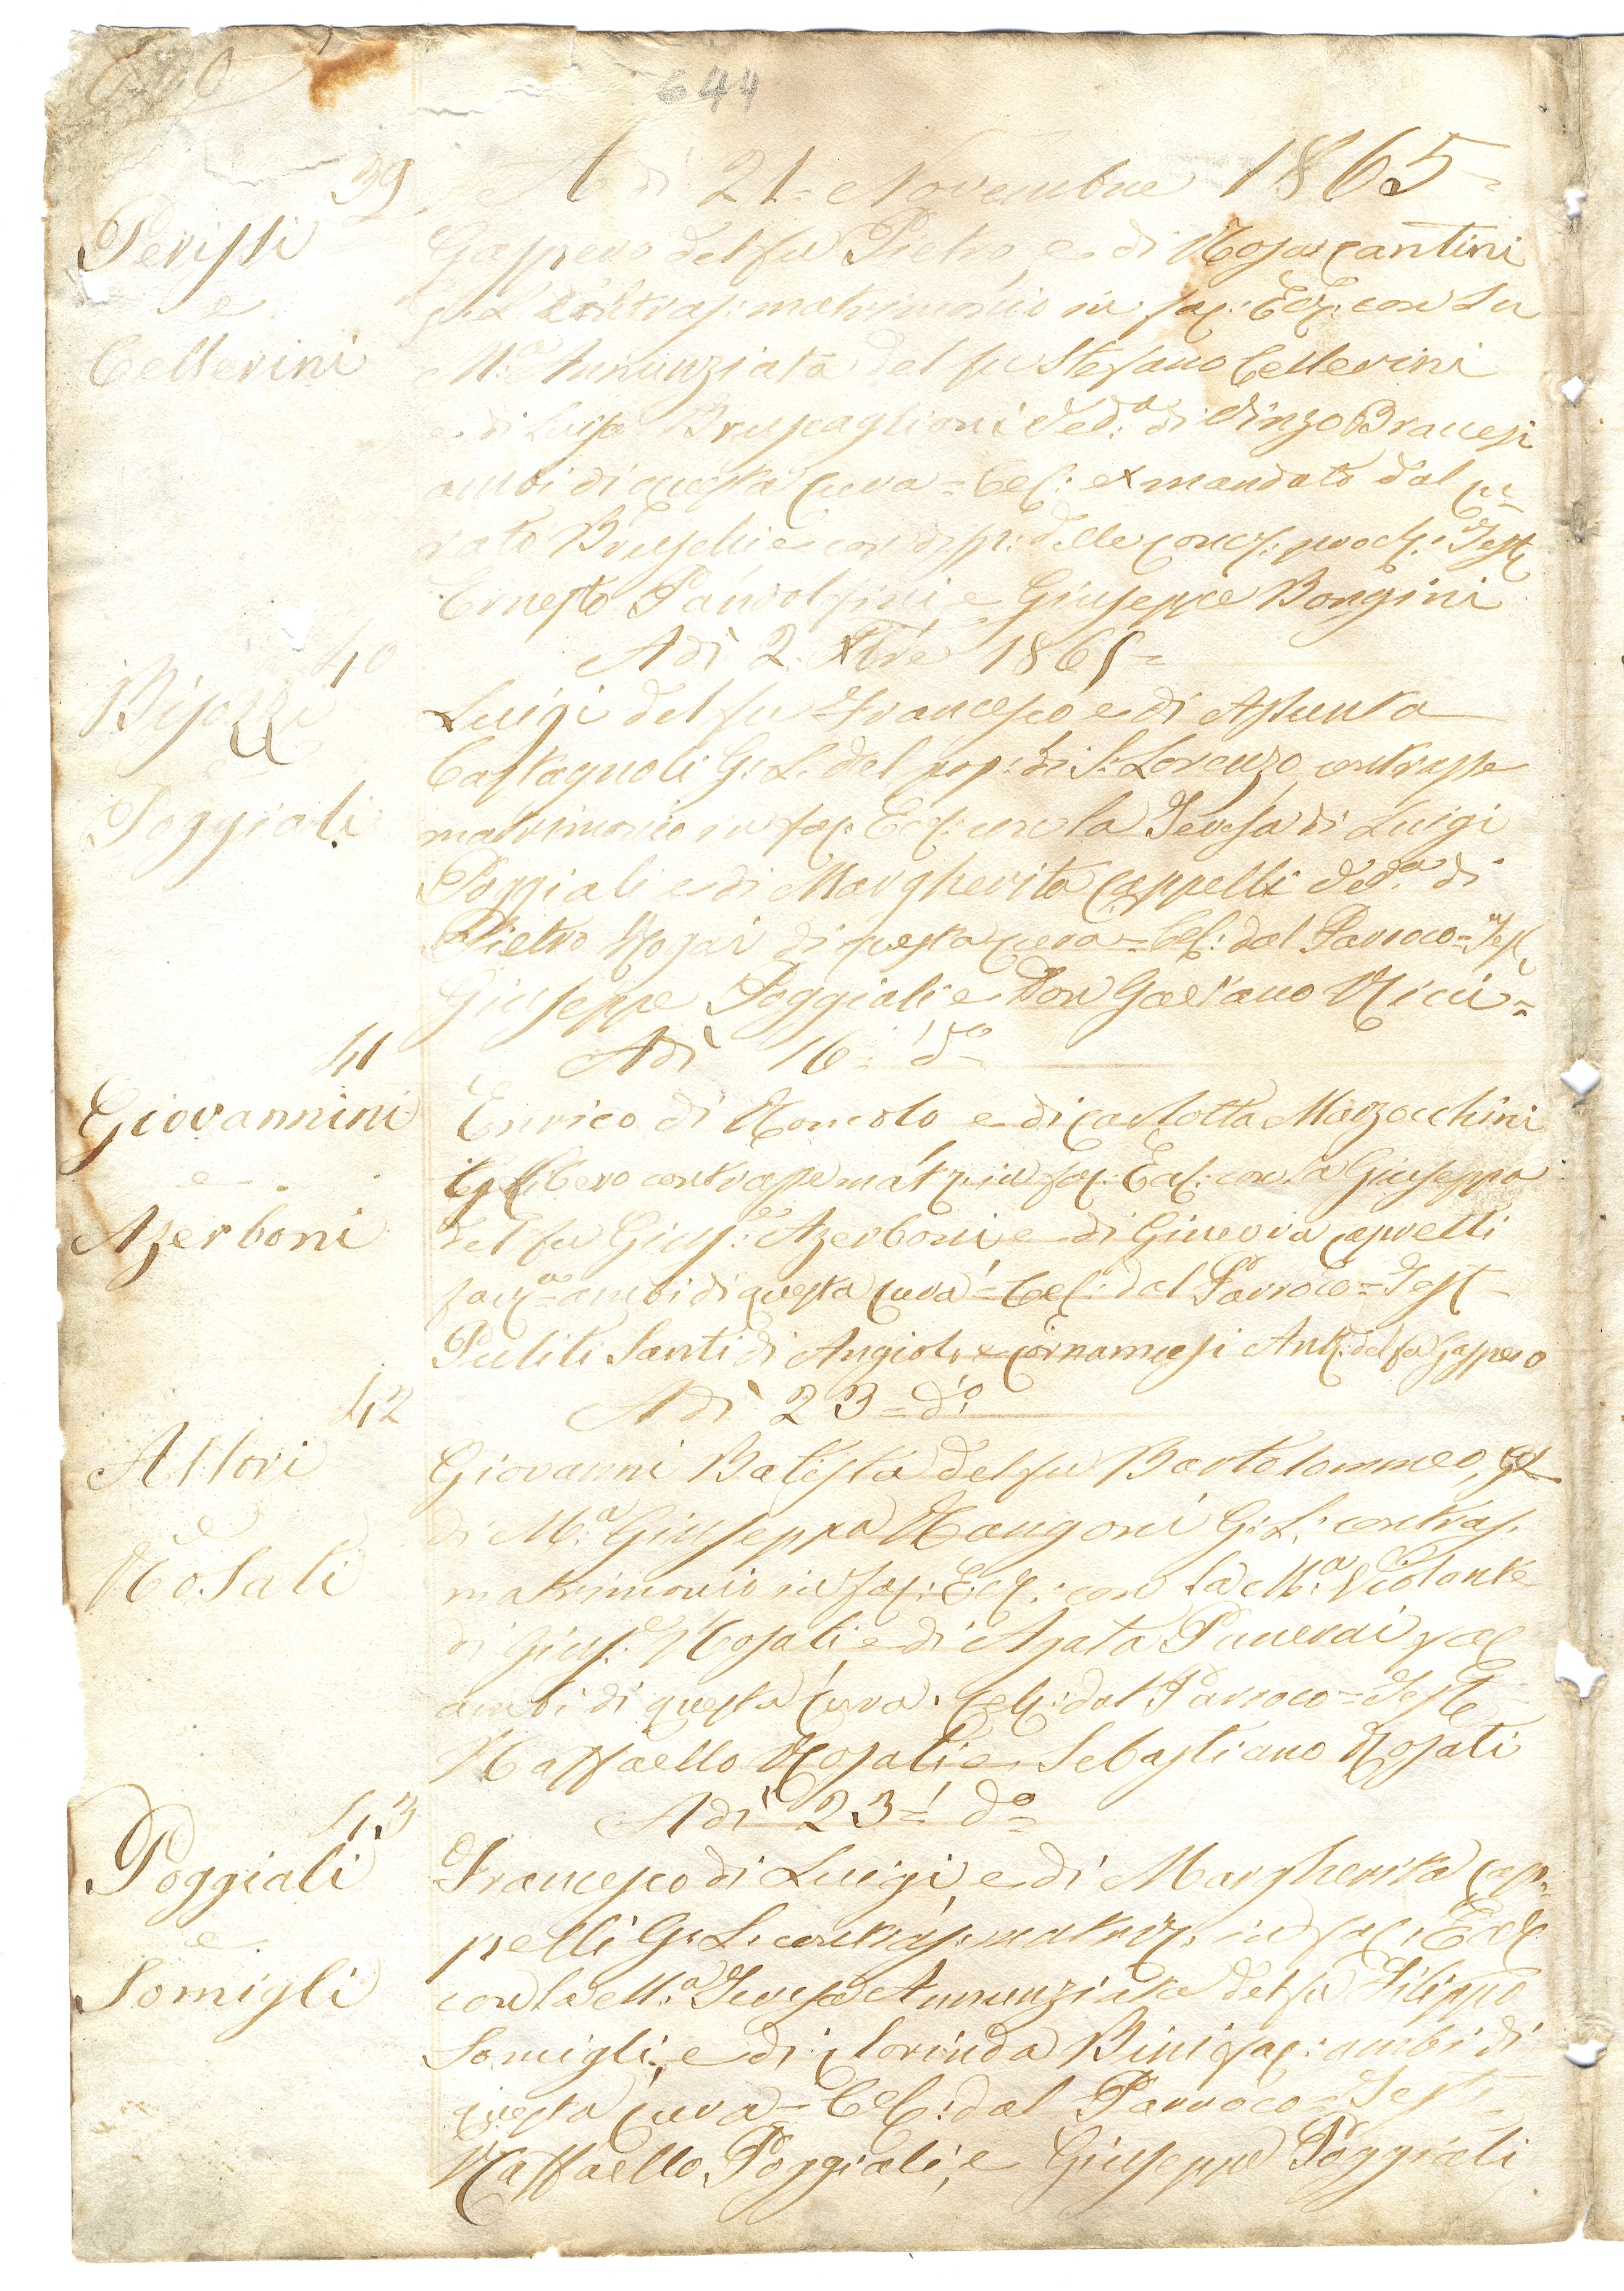 644
39 A dì 21 = Novembre 1865 =
Perissi e Cellerini
Gasp&ero del fu Pietro, e di Rosa Cantini
G: L: contras: matrimonio in fac: Eccl: con la
M.a Annunziata del fu Stefano Cellerini
e di Luisa Bruscaglioni Ved.a di Vinz.o Bracesi
ambi di questa Cura = Cel: ex mandato dal Cu=
rato Bruschi e con disp: delle concs: procl: Test
Ernesto Pandolfini e Giuseppe Bongini
40 A dì 2. Xbre 1865 =
Bisozzi e Poggiali
Luigi del fu Francesco e di Assunta
Castagnoli G: L: del pop: di S: Lorenzo, contrasse
matrimonio in fac: Eccl: con la Teresa di Luigi
Poggiali e di Margherita Cappelli Ved.a di
Pietro Rogai di questa Cura = Cel: dal Parroco = Test
Giuseppe Poggiali e Don Gaetano Ricci =
41 A dì 16 = do
Giovannini e Azerboni
Enrico di Romolo e di Carlotta Marzocchini
Libero contrasse matr: in fac: Eccl: con la Giuseppa
del fu Gius.e Azerboni e di Ginevra Capretti
fanc.a ambi di questa Cura = Cel: dal Parroco = Test
Puliti Santi di Angiolo e Ant: del fu Gasp.ero
42 A dì 23 = do
Allori e Rosati
Giovanni Batista del fu Bartolommeo, e
di M.a Giuseppa Rangoni G: L: contras.
matrimonio in fac: Eccl: con la M.a Violante
di Gius.e Rosati, e di Agata Panerai fac
ambi di questa Cura. Cel: dal Parroco = Teste
Raffaello Rosati e Sebastiano Rosati
43 A dì 23 = do
Poggiali e Somigli
Francesco di Luigi, e di Margherita Cap=
pelli G: L: contras: matrim: in fac: Eccl
con la M.a Teresa Annunziata del fu Filippo
Somigli, e di Clorinda Bini fac: ambi di
questa Cura = Cel: dal Parroco = Testi
Raffaello Poggiali, e Giuseppe Poggiali